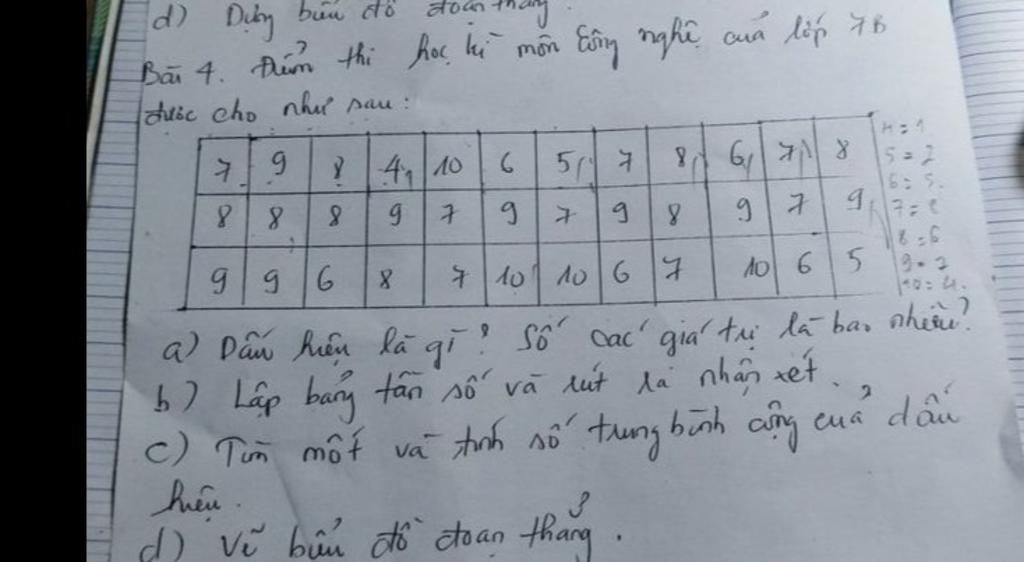 d) Dựng biểu đồ đoạn thẳng.
Bài 4. Điểm thi học kì môn Công nghệ của lớp 7B
được cho như sau:
7 9 8 4 10 6 5 7 8 6 7 8
8 8 8 9 7 9 7 9 8 9 7 9
9 9 6 8 7 10 10 6 7 10 6 5
4 = 1
5 = 2
6 = 5
7 = 8
8 = 6
9 = 7
10 = 4.
a) Dấu hiệu là gì? Số các giá trị là bao nhiêu?
b) Lập bảng tần số và rút ra nhận xét.
c) Tìm mốt và tính số trung bình cộng của dấu
hiệu.
d) Vẽ biểu đồ đoạn thẳng.